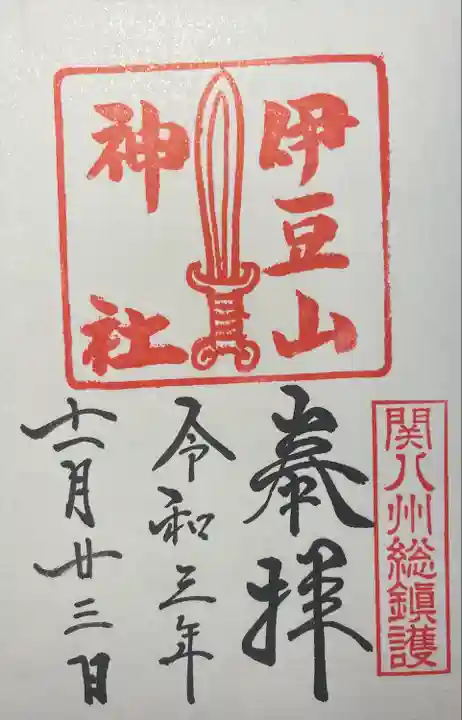 伊豆山
神社
関八州総鎭護
奉拝
令和三年
十一月廿三日